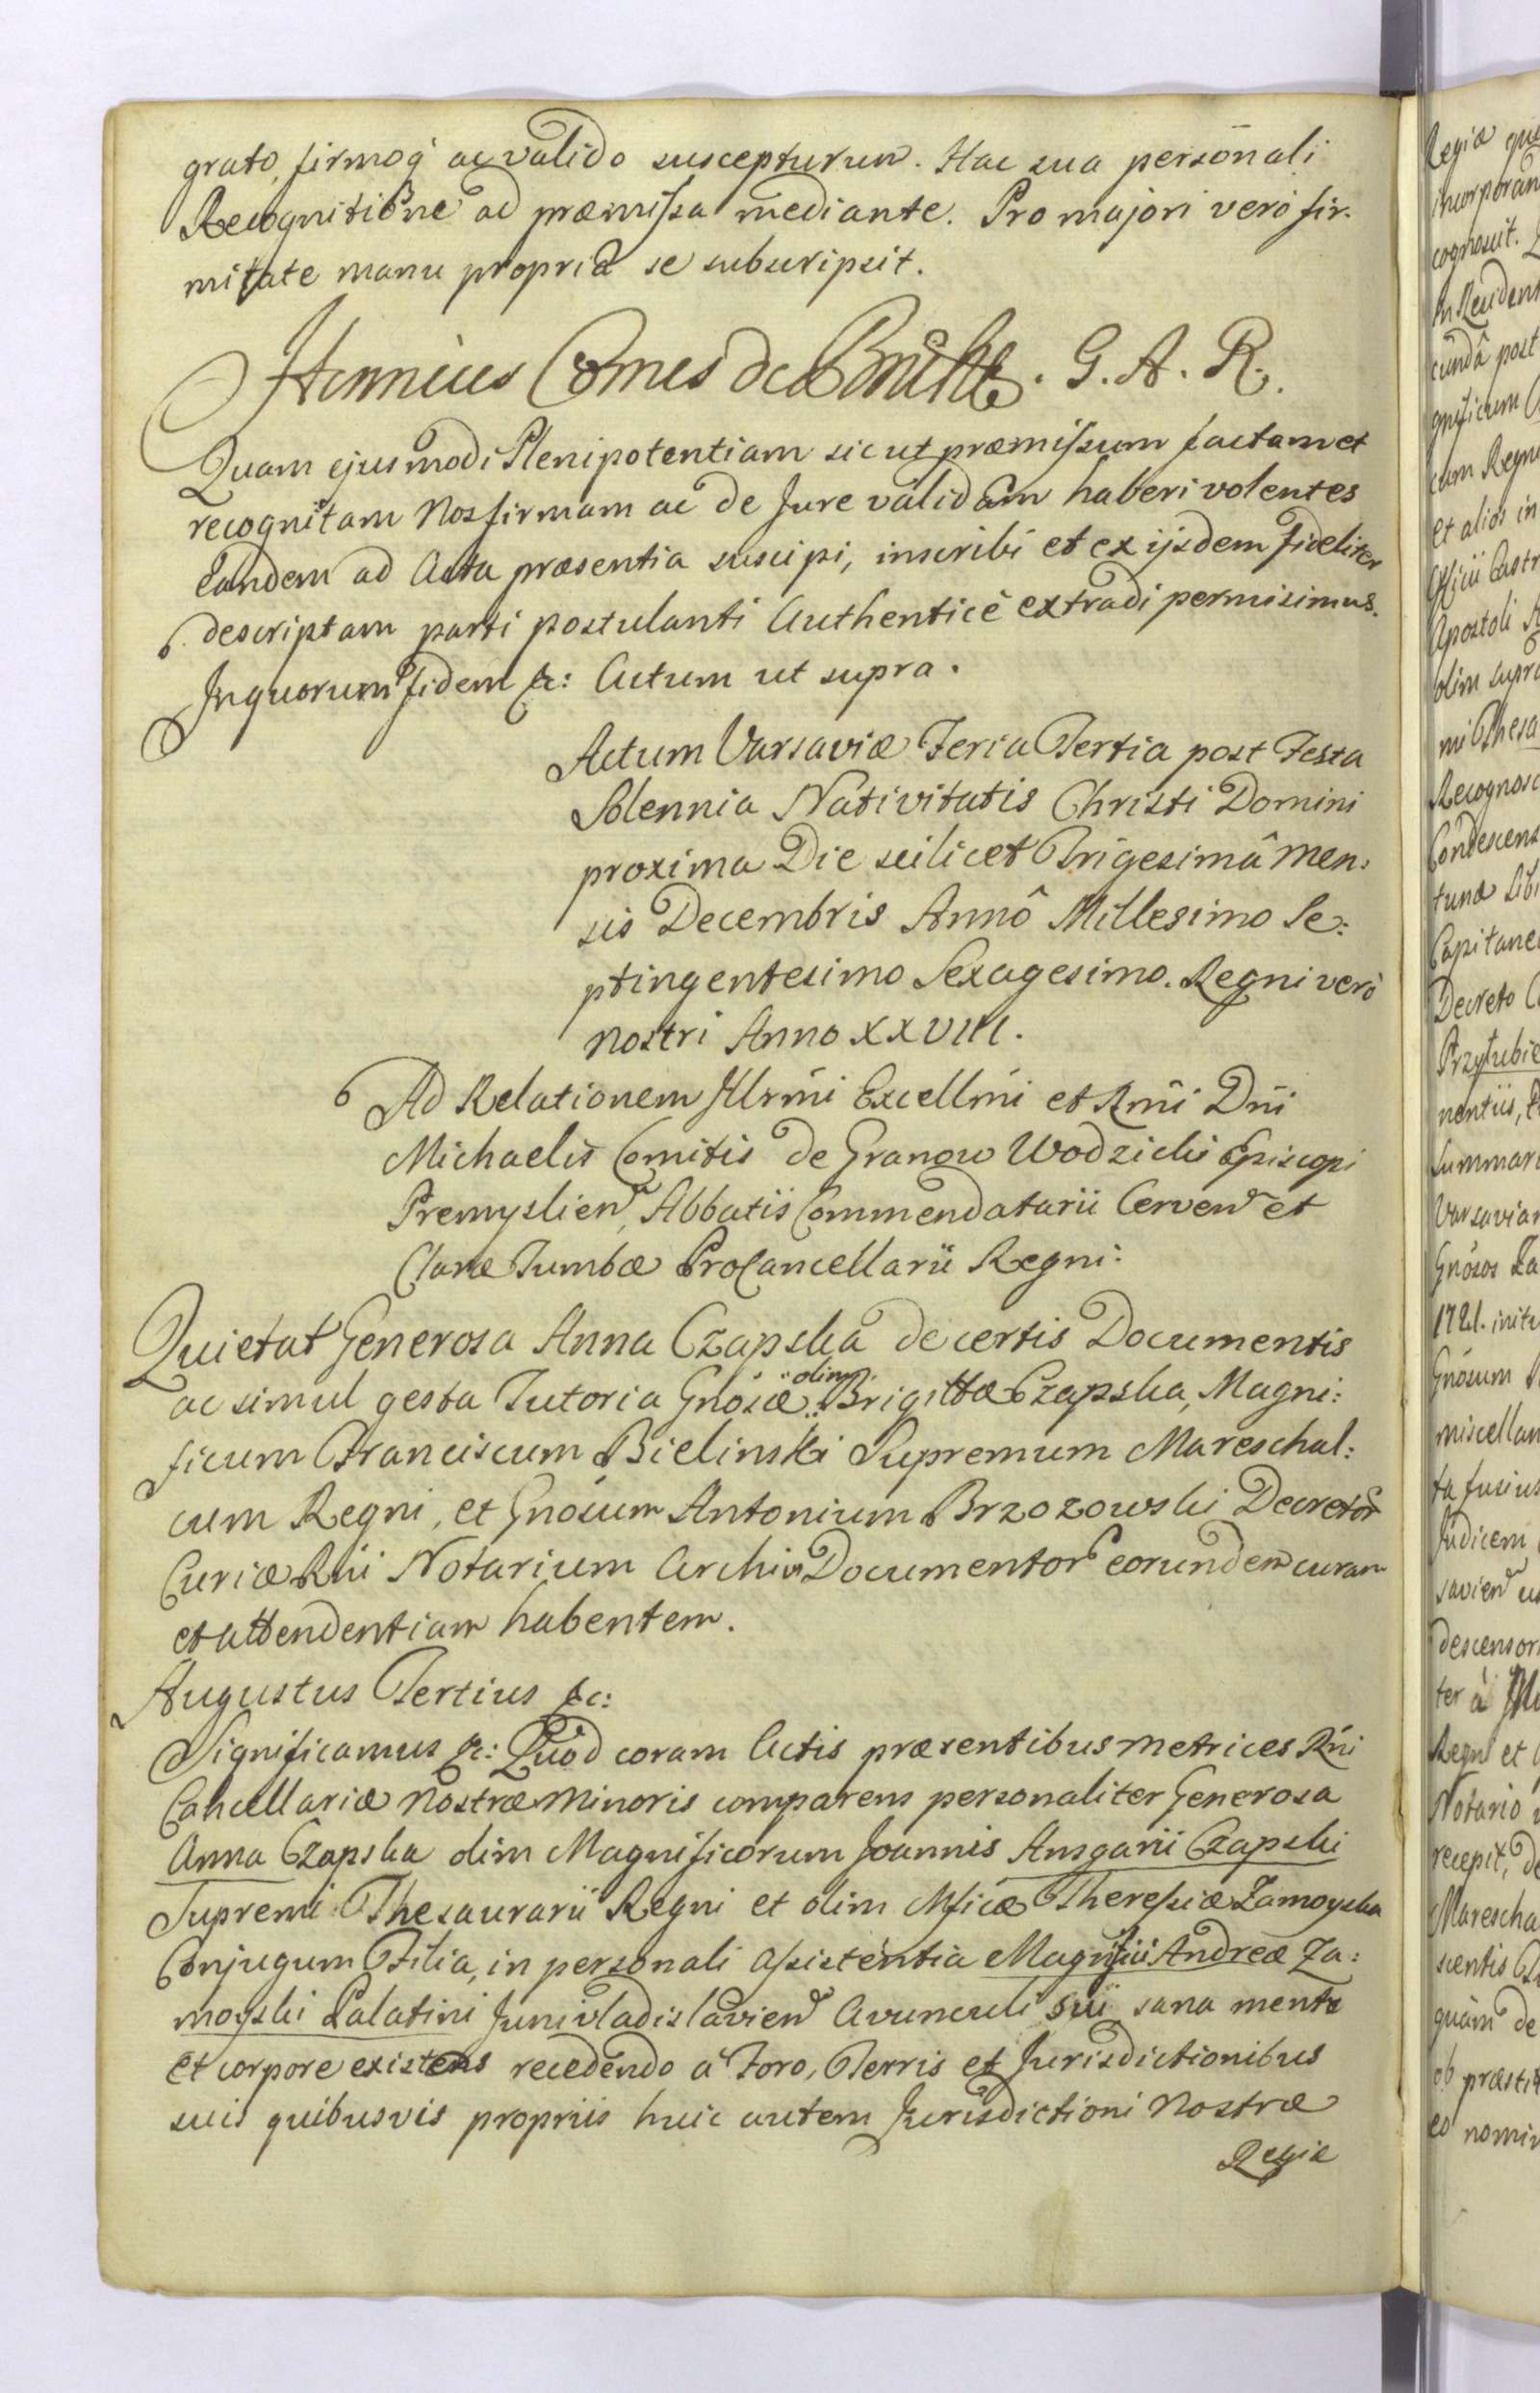 grato, firmoq́ ac valido suscepturum. Hac sua personali
Recognitione ad præmissa mediante. Pro majori verò fir-
mitate manu propriâ se subscripsit.
Henricus Comes de Brühl. G. A. R.
Quam ejusmodi Plenipotentiam sic ut præmissum factam et
recognitam Nos firmam ac de Jure validam haberi volentes
Eandem ad Acta præsentia suscipi, inscribi et ex ijsdem fideliter
descriptam parti postulanti Authenticè extradi permisimus.
In quorum fidem &c: Actum ut supra.
Actum Varsaviæ Feria Tertia post Festa
Solennia Nativitatis Christi Domini
proxima Die scilicet Trigesimâ Men:
sis Decembris Annô Millesimo Se:
ptingentesimo Sexagesimo. Regni verò
Nostri Anno XXVIII.
Ad Relationem Illrm̄i Excellm̄i et Rm̄i Dn̄i
Michaelis Comitis de Granow Wodzicki Episcopi
Premyslien, Abbatis Commendatarii Cerven et
Claræ Tumbæ ProCancellarii Regni:
Quietat Generosa Anna Czapska de certis Documentis
ac simul gesta Tutoria Gnósæ olim Brigittæ Czapska, Magni:
ficum Franciscum Bielinski Supremum Mareschal:
cum Regni, et Gnósum Antonium Brzozowski Decretor
Curiæ Rńi Notarium Archivi Documentor eorundem curam
et attendentiam habentem.
Augustus Tertius &c:
Significamus &c: Quòd coram Actis præsentibus Metrices Rńi
Cancellariæ Nostræ Minoris comparens personaliter Generosa
Anna Czapska olim Magnificorum Joannis Ansgarii Czapski
Supremi Thesaurarii Regni et olim Mficæ Theresiæ Zamoyska
Conjugum Filia, in personali Assistentia Magnifici Andreæ Za:
moyski Palatini Junivladislavien Avunculi sui sana mente
et corpore existens recedendo à Foro, Terris et Jurisdictionibus
suis quibusvis propriis huic autem Jurisdictioni Nostræ
Regiæ